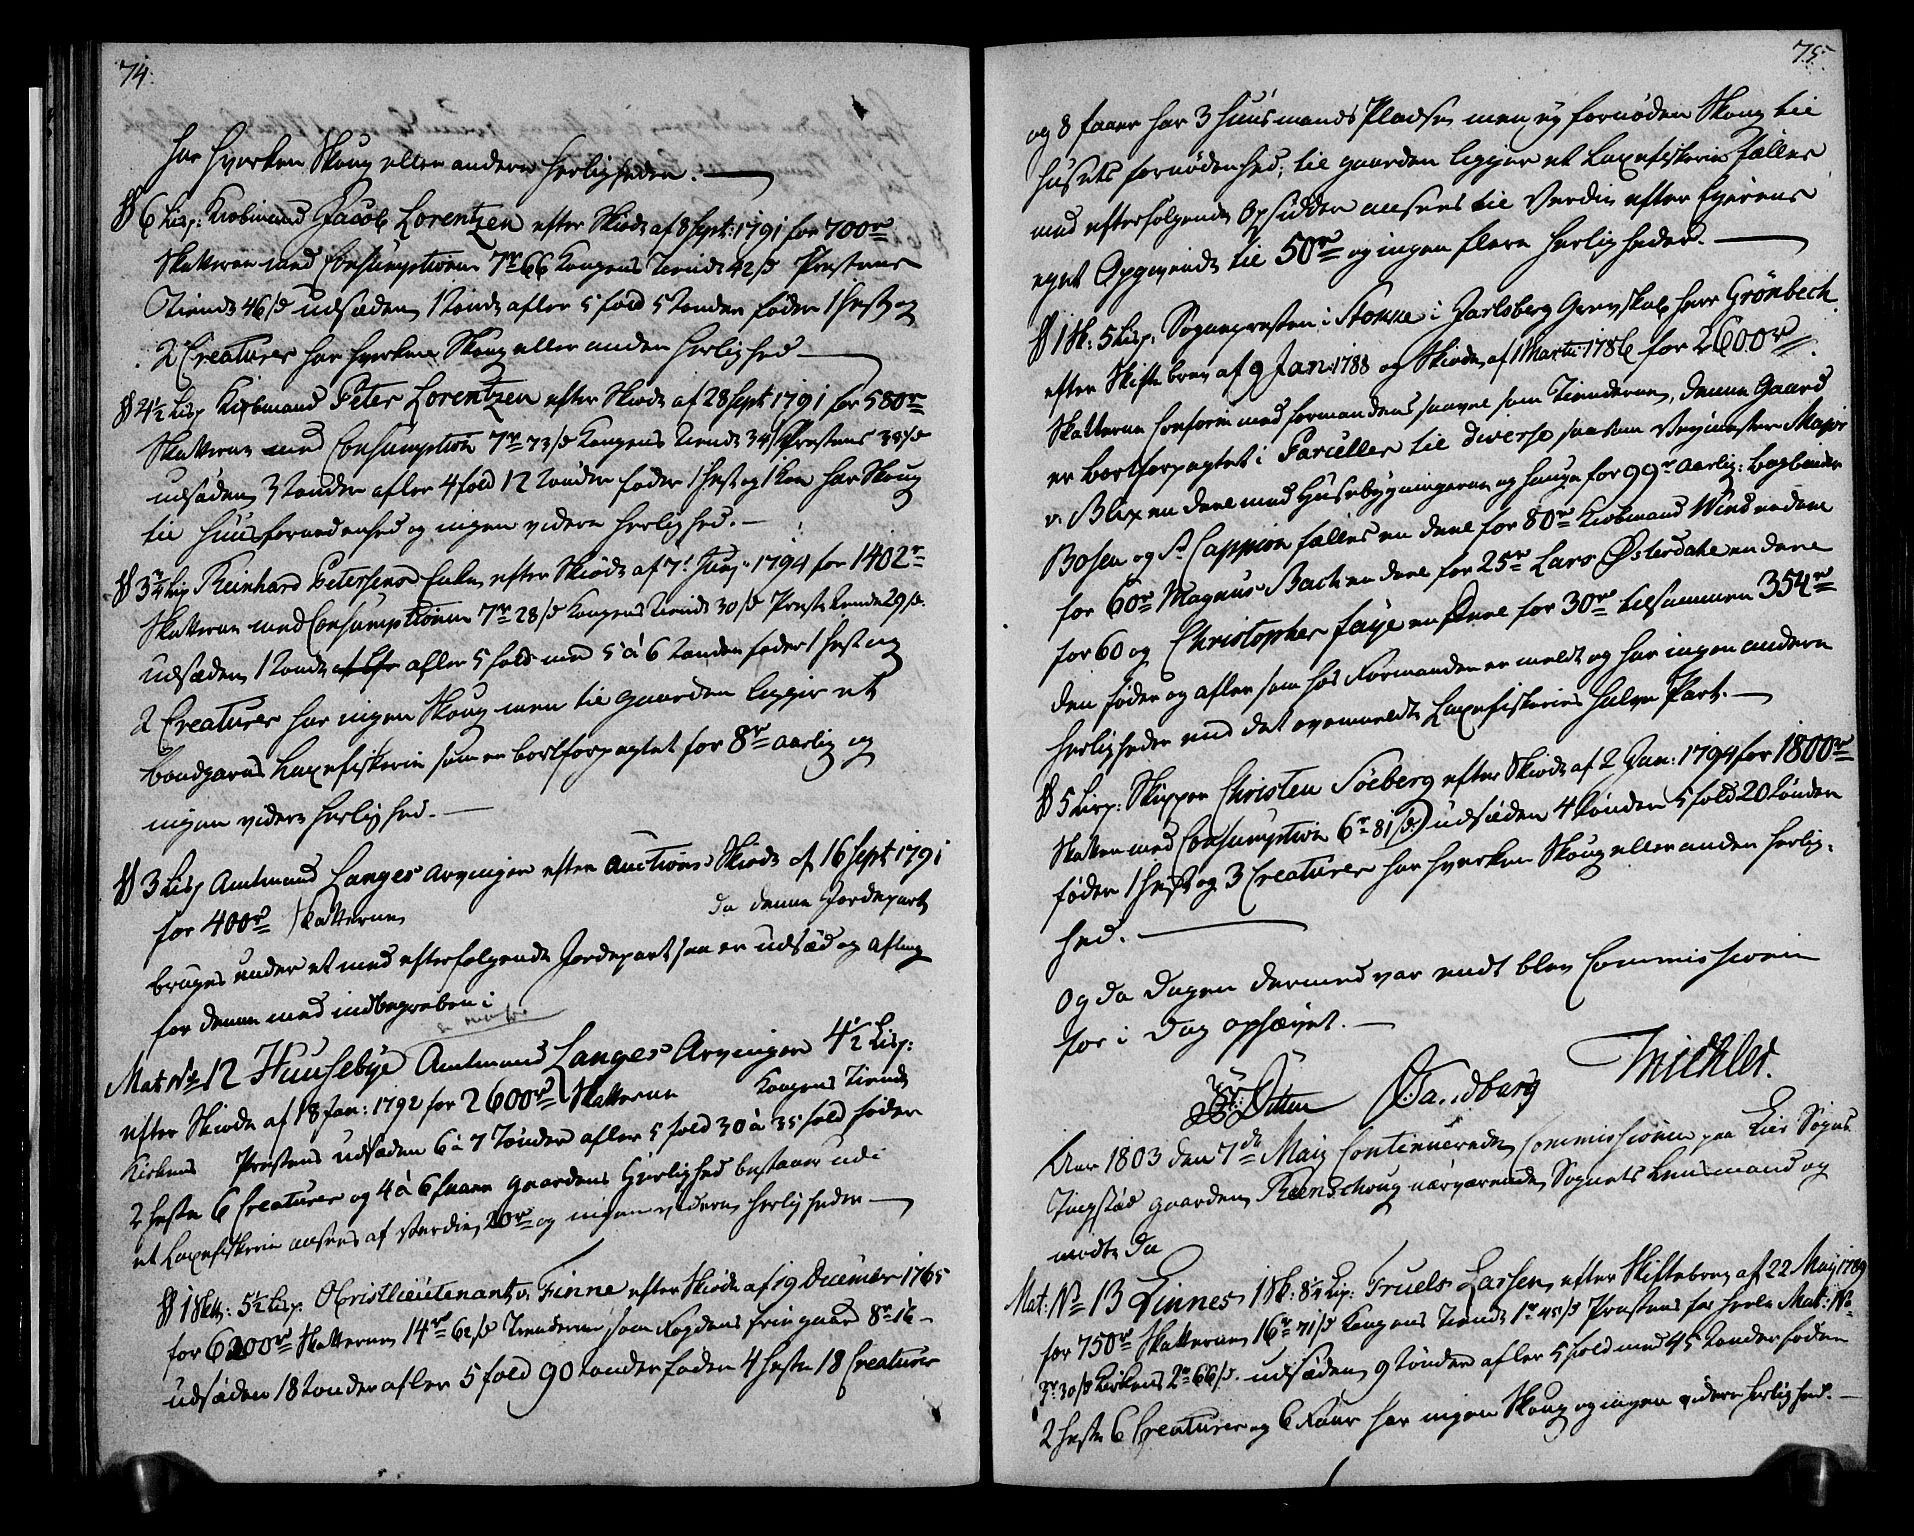 74.
har hverken Skoug eller andere Herligheder. —
§ 6 Lisp: Kiøbmand Jacob Lorentzen efter Skiøde af 8 Sept: 1791 for 700 r
Skatterne med Consumptionen 7 r 66 Kongens Tiende 42 s Præstens
Tiende 46 s udsæden 1 Tønde avler 5 fold 5 Tønder føder 1 Hest og
2 Creaturer har hverken Skoug eller anden Herlighed —
§ 4½ Lisp Kiøbmand Peter Lorentzen efter Skiøde af 28 Sept 1791 for 580 r
Skatterne med Consumption 7 r 73 s Kongens Tiende 34 s Præstens 38 s
udsæden 3 Tønder avler 4 fold 12 Tønder føder 1 Hest og 1 Koe har Skoug
til Huusfornødenhed og ingen videre Herlighed. —
§ 3¼ Lisp Reinhard Petersens Enke efter Skiøde af 7 Junj 1794 for 1402 r
Skatterne med Consumptionen 7 r 28 s Kongens Tiende 30 s Præste Tiende 29 s.
udsæden 1 Tønde avler 5 fold med 5 à 6 Tønder føder 1 Hest og
2 Creaturer har ingen Skoug men til gaarden ligger et
Bondgarns Laxefiskerie som er bortforpagtet for 8 r aarlig og
ingen videre Herlighed. —
§ 3 Lisp Amtmand Langes Arvinger efter Auctions Skiøde af 16 Sept 1791
for 400 r Skatterne da denne Jordepart
bruges under et med efterfølgende Jordepart saa er udsæd og afling
for denne med indbegreben i
Mat No 12 Huusebye Amtmand Langes Arvinger 4½ Lisp:
efter Skiøde af 18 Jan: 1792 for 2600 r Skatterne Kongens Tiende
Kirkens Præstens udsæden 6 à 7 Tønder avler 5 fold 30 à 35 fold føder
2 Heste 6 Creaturer og 4 à 6 faaer gaardens Herlighed bestaaer udi
et Laxefiskerie ansees af Værdie 20 r og ingen videre Herligheder —
§ 1 Skt: 5½ Lisp. Obristlieutenant v. Finne efter Skiøde af 19 December 1765
for 6200 r Skatterne 14 r 62 s Tienderne som Fogdens fri gaard 8 r 16 —
udsæden 18 Tønder avler 5 fold 90 Tønder føder 4 Heste 18 Creaturer
75.
og 8 faaer har 3 Huusmands Pladser men ey fornøden Skoug til
Husets fornødenhed; til gaarden ligger et Laxefiskerie fælles
med efterfølgende Opsidder ansees til Værdie efter Eyerens
eget Opgivende til 50 r og ingen flere Herligheder. —
§ 1 Sk: 5 Lisp: Sognepresten i Stokke i Jarlsberg Grevskab Herr Grønbech
efter Skifte brev af 9 Jan: 1788 og Skiøde af 1 Martii 1786 for 2600 r
Skatterne conform med Formandens saavel som Tienderne, denne Gaard
er bortforpagtet i Parceller til diverse saasom Veymester Major
v. Blix en deel med Husebygningerne og Hauge for 99 r aarlig: Bogbinder
Bosen og Sr Cappion fælles en deel for 80 r Kiøbmand Wind en deel
for 60 r Magnus Bach en deel for 25 r Lars Østerdahl en deel
for 60 og Christopher Faye en Deel for 30 r tilsammen 354 r
den føder og avler som hos Formanden er meldt og har ingen andere
Herligheder end det ovenmeldte Laxefiskeries halve Part. —
§ 5 Lisp: Skipper Christen Søeberg efter Skiøde af 2 Jan: 1794 for 1800 r
Skatter med Consumption 6 r 81 s udsæden 4 Tønder 5 fold 20 Tønder
føder 1 Hest og 3 Creaturer har hverken Skoug eller anden Herlig-
hed. —
Og da Dagen dermed var endt blev Commissionen
for i Dag ophævet. —
Ditten Sandburg Michlet.
Aar 1803 den 7de Maij Continuerede Commissionen paa Lier Sogns
Tingstæd gaarden Reenschoug nærværende Sognets Lensmand og
mødte da
Mat: No 13 Linnes 1 Sk: 8½ Lisp: Truels Larsen efter Skiftebrev af 22 Maij 1789
for 750 r Skatterne 16 r 71 s Kongens Tiende 1 r 45 s Præstens for heele Mat: No
3 r 30 s Kirkens 2 r 66 s. udsæden 9 Tønder avler 5 fold med 45 Tønder føder
2 Heste 6 Creaturer og 6 Faaer har ingen Skoug og ingen videre Herlighed. —